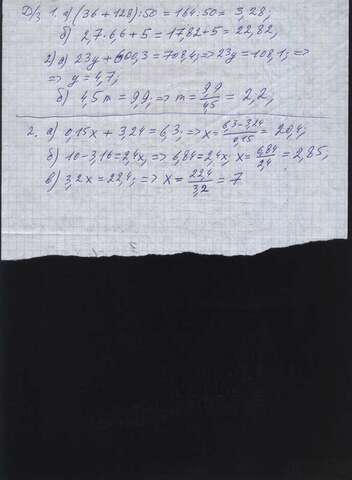 Д/з 1. а) (36+128):50 = 164:50 = 3,28;
б) 2,7·6,6+5 = 17,82+5 = 22,82;
2) а) 23y + 600,3 = 708,4; => 23y = 108,1; =>
=> y = 4,7;
б) 4,5m = 9,9; => m = 9,9/4,5 = 2,2;
2. а) 0,15x + 3,24 = 6,3; => x = 6,3-3,24/0,15 = 20,4;
б) 10-3,16=2,4x; => 6,84=2,4x; x = 6,84/2,4 = 2,85;
в) 3,2x = 22,4; => x = 22,4/3,2 = 7